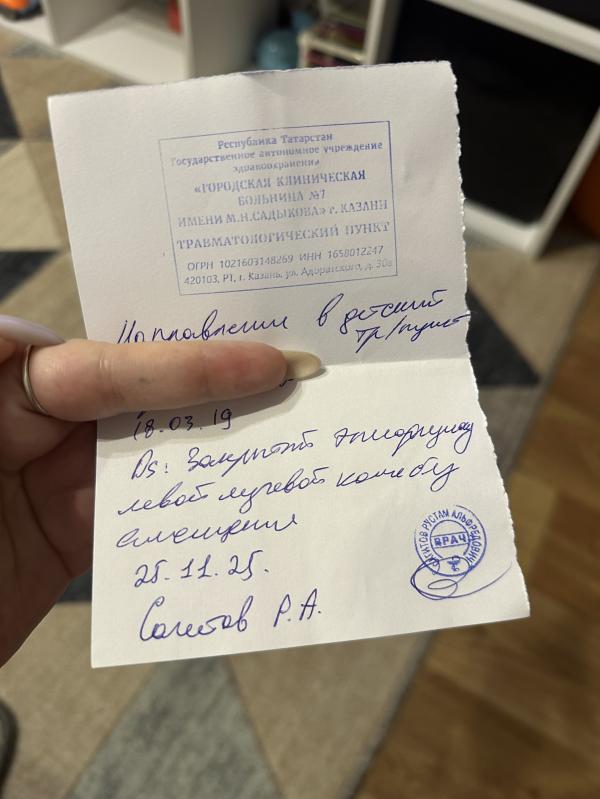 Республика Татарстан
Государственное автономное учреждение
здравоохранения
«ГОРОДСКАЯ КЛИНИЧЕСКАЯ
БОЛЬНИЦА №7
ИМЕНИ М.Н.САДЫКОВА» г. КАЗАНИ
ТРАВМАТОЛОГИЧЕСКИЙ ПУНКТ
ОГРН 1021603148269 ИНН 1658012247
420103, РТ, г. Казань, ул. Адоратского, д. 30а
Направлении в детский
тр/пункт
18.03.19
Ds: Закрытый
левой лучевой кости б/у
смещения
25.11.25.
Сагитов Р.А.
САГИТОВ РУСТАМ АЛЬФРЕДОВИЧ
ВРАЧ